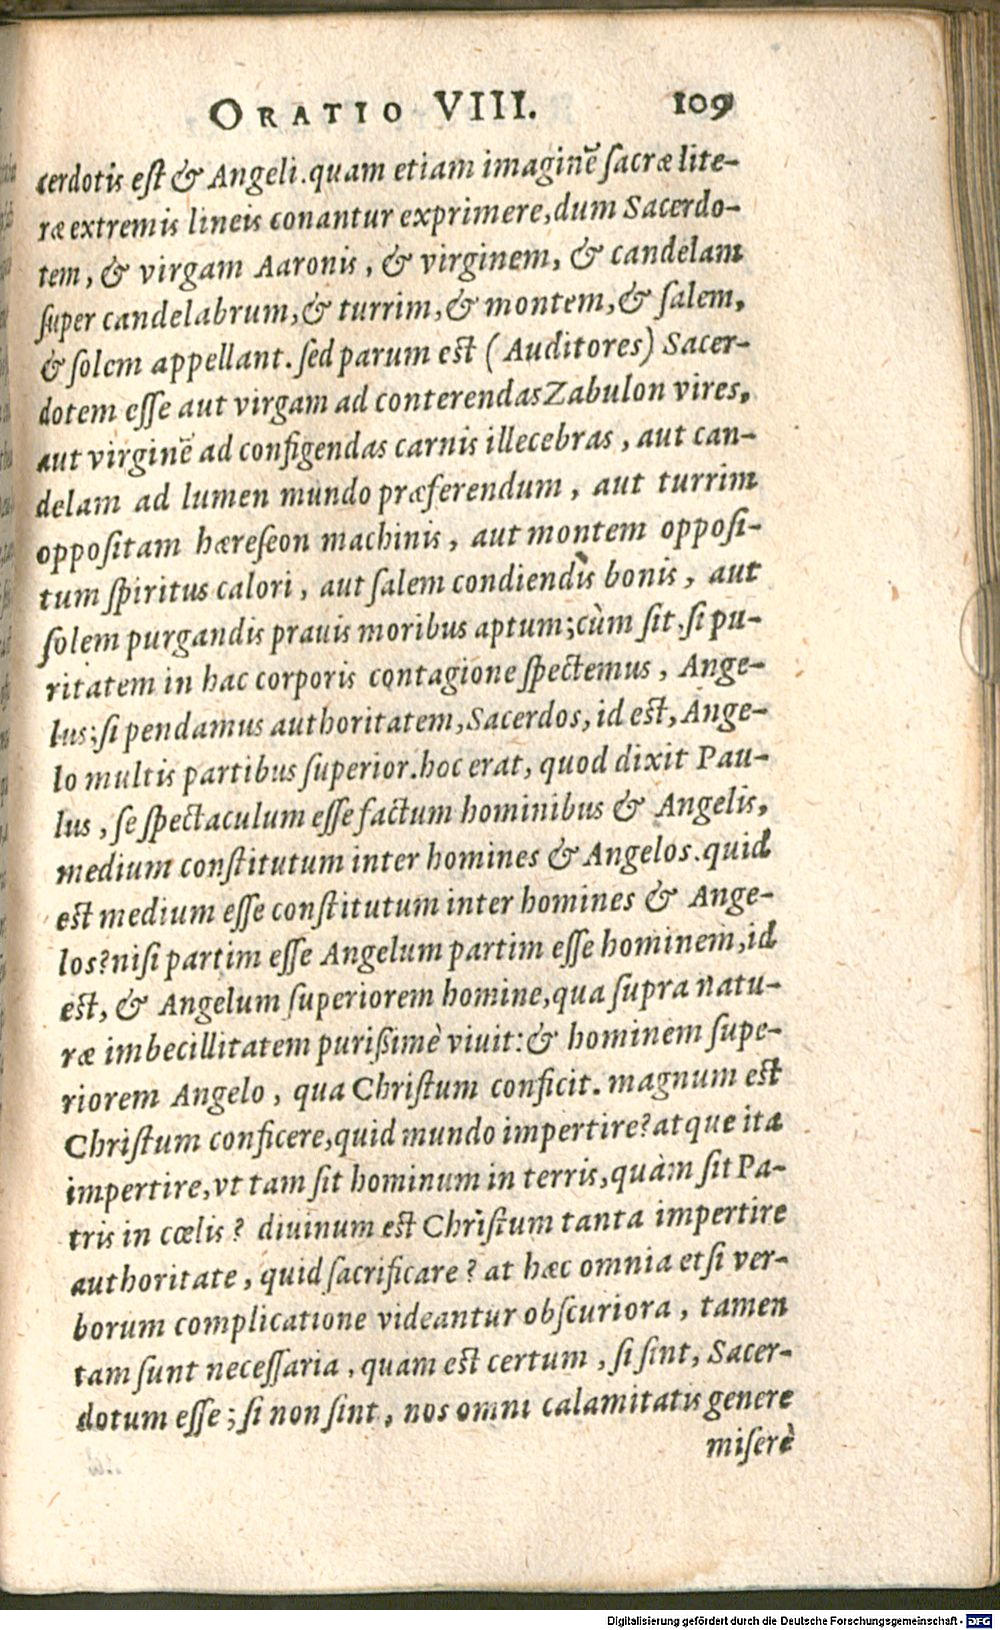 ORATIO VIII. 109
cerdotis eſt & Angeli. quam etiam imaginē ſacræ lite-
ræ extremis lineis conantur exprimere, dum Sacerdo-
tem, & virgam Aaronis, & virginem, & candelam
ſuper candelabrum, & turrim, & montem, & ſalem,
& ſolem appellant. ſed parum est (Auditores) Sacer-
dotem eſſe aut virgam ad conterendas Zabulon vires,
aut virginē ad configendas carnis illecebras, aut can-
delam ad lumen mundo præferendum, aut turrim
oppoſitam hæreſeon machinis, aut montem oppoſi-
tum ſpiritus calori, aut ſalem condiendis bonis, aut
ſolem purgandis prauis moribus aptum; cùm ſit, ſi pu-
ritatem in hac corporis contagione ſpectemus, Ange-
lus; ſi pendamus authoritatem, Sacerdos, id est, Ange-
lo multis partibus ſuperior. hoc erat, quod dixit Pau-
lus, ſe ſpectaculum eſſe factum hominibus & Angelis,
medium conſtitutum inter homines & Angelos. quid
est medium eſſe conſtitutum inter homines & Ange-
los? niſi partim eſſe Angelum partim eſſe hominem, id
est, & Angelum ſuperiorem homine, qua ſupra natu-
ræ imbecillitatem purißimè viuit: & hominem ſupe-
riorem Angelo, qua Chriſtum conficit. magnum est
Chriſtum conficere, quid mundo impertire? atque ita
impertire, vt tam ſit hominum in terris, quàm ſit Pa-
tris in cœlis? diuinum est Chriſtum tanta impertire
authoritate, quid ſacrificare? at hæc omnia etſi ver-
borum complicatione videantur obſcuriora, tamen
tam ſunt neceſſaria, quam est certum, ſi ſint, Sacer-
dotum eſſe; ſi non ſint, nos omni calamitatis genere
miſerè
Digitalisierung gefördert durch die Deutsche Forschungsgemeinschaft - DFG